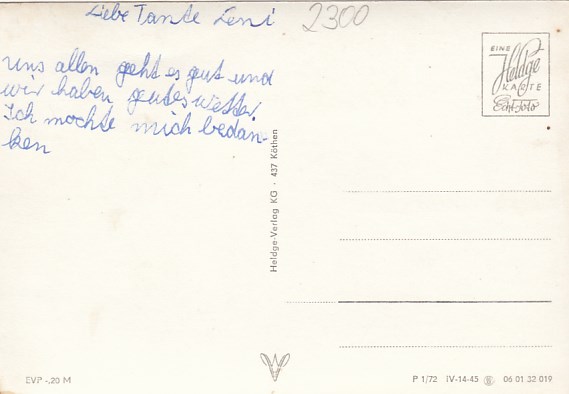 Liebe Tante Leni
2300
uns allen geht es gut und
wir haben gutes wetter
Ich mochte mich bedan-
ken
EINE
Heldge
KARTE
Echt Foto
Heldge-Verlag KG · 437 Köthen
EVP -,20 M
P 1/72 IV-14-45 06 01 32 019